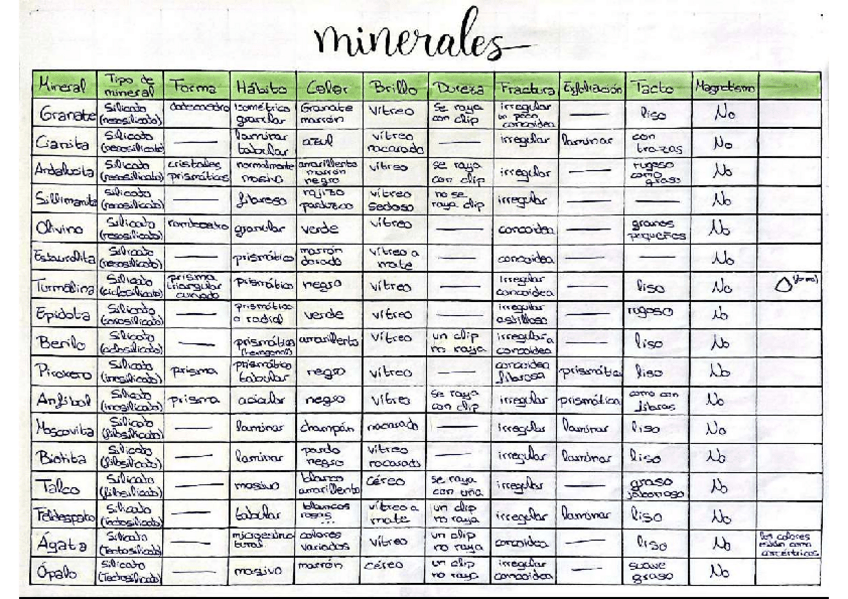 minerales
Mineral Tipo de mineral Forma Hábito Color Brillo Dureza Fractura Exfoliación Tacto Magnetismo
Granate Silicato (nesosilicato) Isométrico granular Granate marrón vítreo se raya con clip irregular un poco concoidea — liso No
Cianita Silicato (nesosilicato) — laminar tabular azul vítreo nacarado — irregular laminar con trazas No
Andalucita Silicato (nesosilicato) cristales prismáticos normalmente masivo amarillento marrón negro vítreo se raya con clip irregular — rugoso como graso No
Sillimanita Silicato (nesosilicato) — fibroso rojizo parduzco vítreo sedoso no se raya clip irregular — — No
Olivino Silicato (nesosilicato) granular verde vítreo — concoidea — granos pequeños No
Estaurolita Silicato (nesosilicato) — prismático marrón dorado vítreo a mate — concoidea — — No
Turmalina Silicato (ciclosilicato) prisma triangular curvado Prismático negro vítreo — Irregular concoidea — liso No
Epidota Silicato (sorosilicato) — prismático a radial verde vítreo — irregular astilloso — rugoso No
Berilo Silicato (ciclosilicato) — prismático amarillento vítreo un clip no raya irregular a concoidea — liso No
Piroxeno Silicato (inosilicato) prisma prismático tabular negro vítreo — concoidea fibrosa prismática liso No
Anfíbol Silicato (inosilicato) prisma acicular negro vítreo se raya con clip irregular prismática como con fibras No
Moscovita Silicato (filosilicato) — laminar champán nacarado — irregular laminar liso No
Biotita Silicato (filosilicato) — laminar pardo negro vítreo nacarado — irregular laminar liso No
Talco Silicato (filosilicato) — masivo blanco amarillento céreo se raya con uña irregular — graso jabonoso No
Feldespato Silicato (tectosilicato) — tabular blancos rosas ... vítreo a mate un clip no raya irregular laminar liso No
Ágata Silicato (Tectosilicato) — colores variados vítreo un clip no raya concoidea — liso No los colores están como
Ópalo Silicato (Tectosilicato) — masivo marrón céreo un clip no raya irregular concoidea — suave graso No